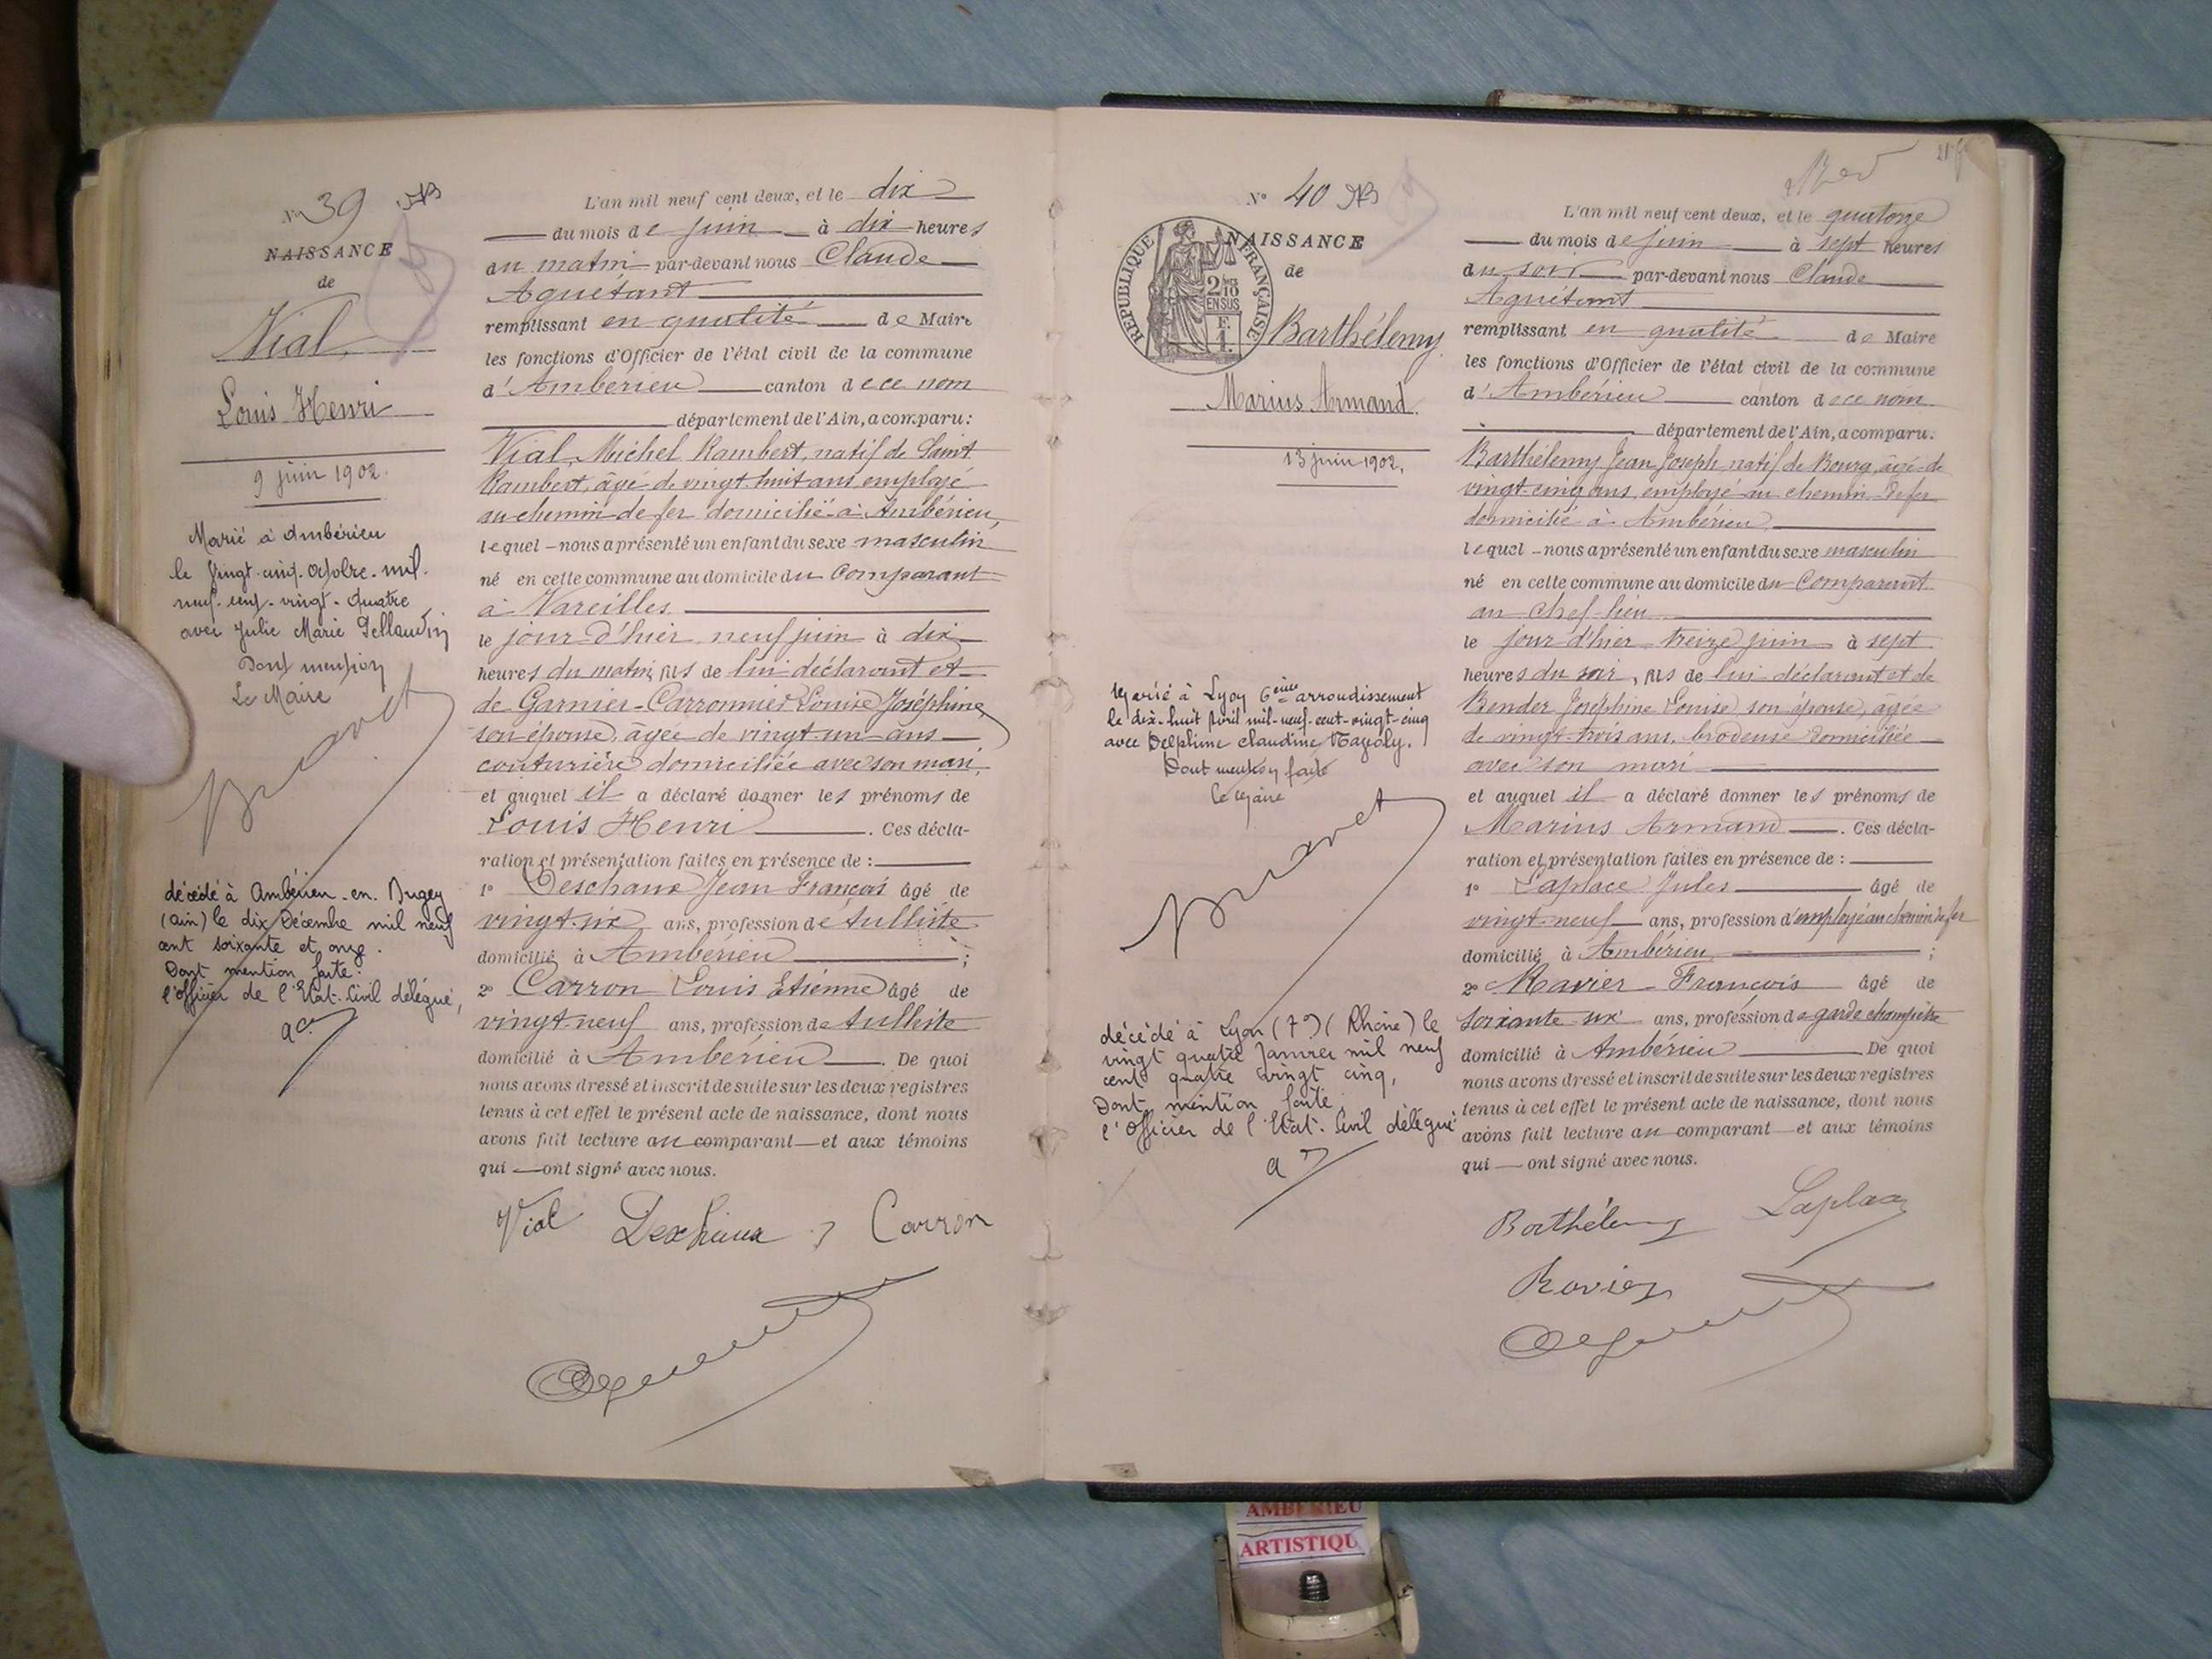 N° 39
NAISSANCE
de
Vial
Louis Henri
9 juin 1902.
Marié à Ambérieu
le vingt-cinq octobre mil-
neuf-cent-vingt-quatre
avec Julie Marie
Dont mention
Le Maire
décédé à Ambérieu-en-Bugey
(ain) le dix Décembre mil neuf
cent soixante et onze.
Dont mention faite.
l'officier de l'Etat-Civil délégué,
L'an mil neuf cent deux, et le dix
du mois de juin à dix heures
du matin par-devant nous Claude
Aguétant
remplissant en qualité de Maire
les fonctions d'Officier de l'état civil de la commune
d'Ambérieu canton de ce nom
département de l'Ain, a comparu:
Vial, Michel Rambert, natif de Saint
Rambert, âgé de vingt-huit ans employé
au chemin de fer domicilié à Ambérieu,
lequel nous a présenté un enfant du sexe masculin
né en cette commune au domicile du Comparant
à Vareilles
le jour d'hier neuf juin à dix
heures du matin, fils de lui déclarant et
de Garnier-Carronnier Louise Joséphine,
son épouse, âgée de vingt-un ans
couturière domiciliée avec son mari,
et auquel il a déclaré donner les prénoms de
Louis Henri. Ces décla-
ration et présentation faites en présence de :
1° Deschaux Jean François âgé de
vingt-six ans, profession de tulliste
domicilié à Ambérieu ;
2° Carron Louis Etienne âgé de
vingt-neuf ans, profession de tulliste
domicilié à Ambérieu. De quoi
nous avons dressé et inscrit de suite sur les deux registres
tenus à cet effet le présent acte de naissance, dont nous
avons fait lecture au comparant et aux témoins
qui ont signé avec nous.
Vial Deschaux Carron
N° 40
NAISSANCE
de
REPUBLIQUE FRANÇAISE
2/10
EN SUS
F.
1.
Barthélemy
Marius Armand.
13 juin 1902.
Marié à Lyon 6ème arrondissement
le dix-huit avril mil-neuf-cent-vingt-cinq
avec Delphine Claudine
Dont mention faite
le Maire
décédé à Lyon (7°) (Rhône) le
vingt quatre Janvier mil neuf
cent quatre vingt cinq,
Dont mention faite
l'Officier de l'Etat-Civil délégué
L'an mil neuf cent deux, et le quatorze
du mois de juin à sept heures
du soir par-devant nous Claude
Aguétant
remplissant en qualité de Maire
les fonctions d'Officier de l'état civil de la commune
d'Ambérieu canton de ce nom
département de l'Ain, a comparu.
Barthélemy Jean Joseph natif de Bourg, âgé de
vingt-cinq ans, employé au chemin de fer
domicilié à Ambérieu
lequel nous a présenté un enfant du sexe masculin
né en cette commune au domicile du Comparant
au chef-lieu
le jour d'hier treize juin à sept
heures du soir, fils de lui déclarant et de
Bender Joséphine Louise, son épouse, âgée
de vingt-trois ans, brodeuse domiciliée
avec son mari
et auquel il a déclaré donner les prénoms de
Marius Armand. Ces décla-
ration et présentation faites en présence de :
1° Laplace Jules âgé de
vingt-neuf ans, profession d'employé au chemin de fer
domicilié à Ambérieu ;
2° Ravier François âgé de
soixante-six ans, profession de garde champêtre
domicilié à Ambérieu De quoi
nous avons dressé et inscrit de suite sur les deux registres
tenus à cet effet le présent acte de naissance, dont nous
avons fait lecture au comparant et aux témoins
qui ont signé avec nous.
Barthélemy Laplace
Ravier
AMBERIEU
ARTISTIQU